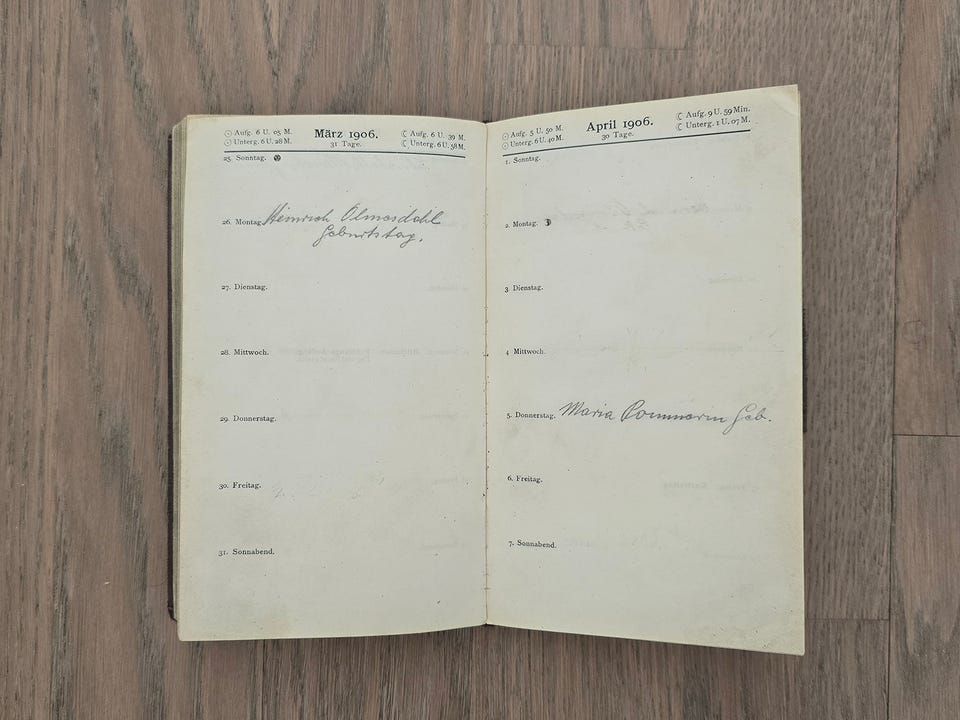 Aufg. 6 U. 05 M.
Unterg. 6 U. 28 M.
März 1906.
31 Tage.
Aufg. 6 U. 39 M.
Unterg. 6 U. 58 M.
25. Sonntag.
26. Montag. Heinrich Olmesdahl
Geburtstag.
27. Dienstag.
28. Mittwoch.
29. Donnerstag.
30. Freitag.
31. Sonnabend.
Aufg. 5 U. 50 M.
Unterg. 6 U. 40 M.
April 1906.
30 Tage.
Aufg. 9 U. 59 Min.
Unterg. 1 U. 07 M.
1. Sonntag.
2. Montag.
3. Dienstag.
4. Mittwoch.
5. Donnerstag. Maria Geb.
6. Freitag.
7. Sonnabend.